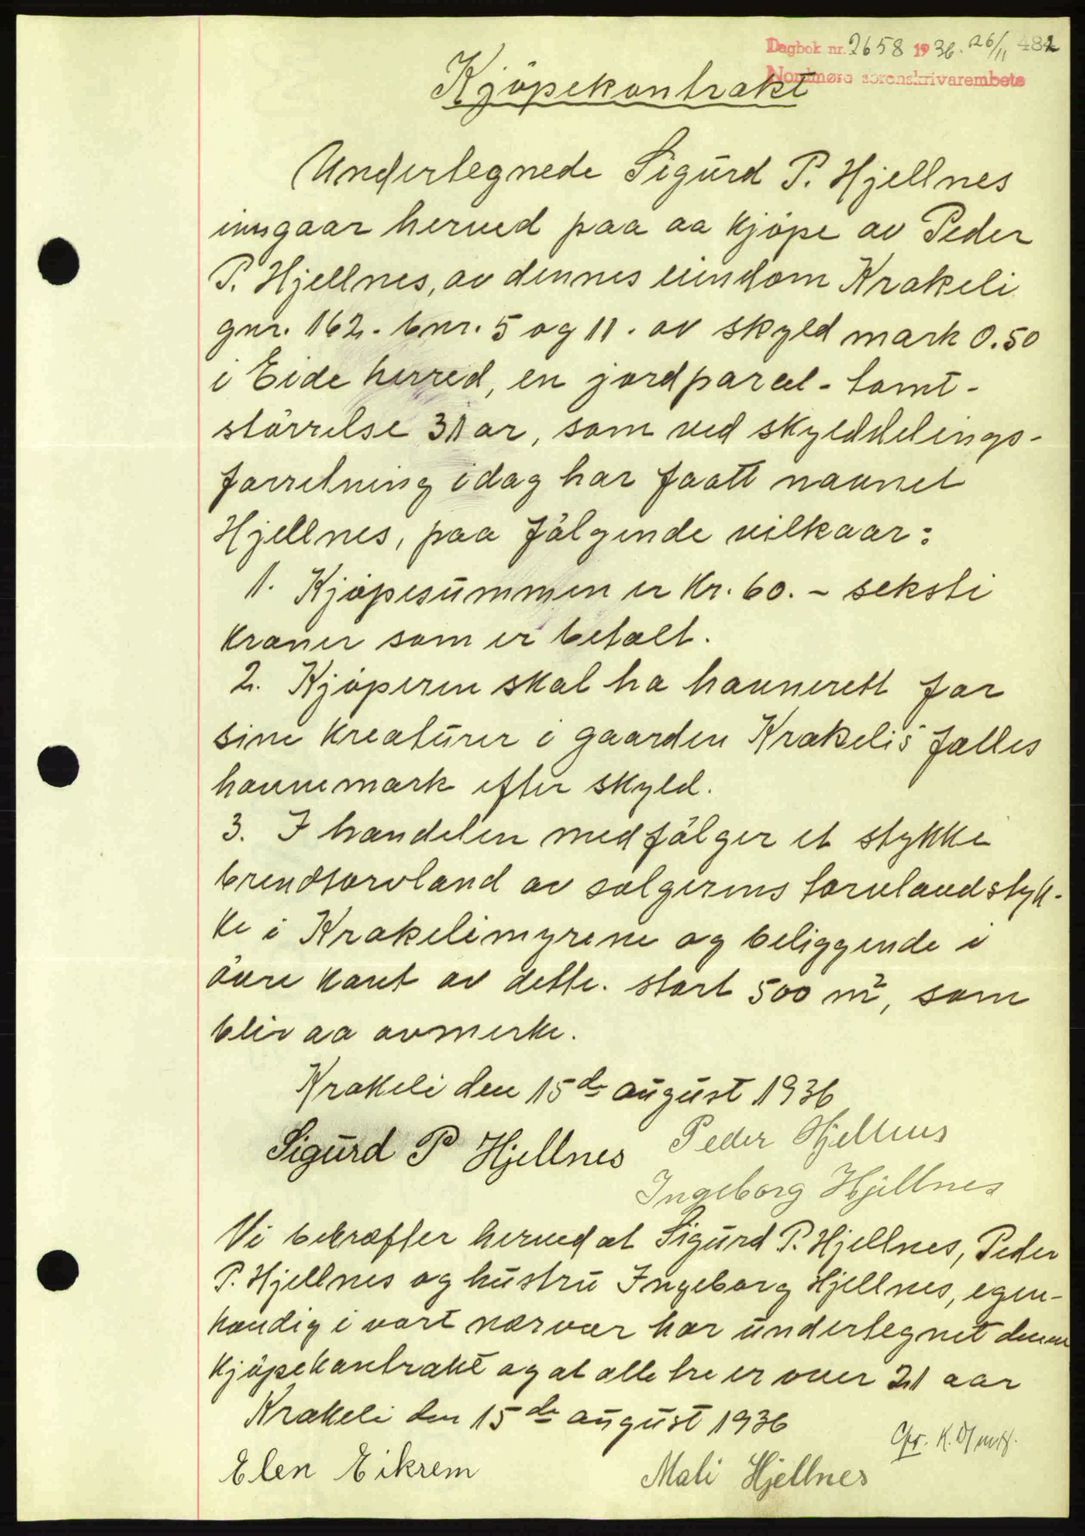 Dagbok nr. 2658 1936. 26/11 482
Nordmøre sorenskrivarembete
Kjöpekontrakt
Undertegnede Sigurd P. Hjellnes
inngaar herved paa aa kjöpe av Peder
P. Hjellnes, av dennes eiendom Krakeli
gnr. 162. bnr. 5 og 11. av skyld mark 0.50
i Eide herred, en jordparcel - tomt -
störrelse 31 ar, som ved skylddelings-
forretning idag har faatt navnet
Hjellnes, paa fölgende vilkaar:
1. Kjöpesummen er kr. 60. - seksti
kroner som er betalt.
2. Kjöperen skal ha havnerett for
sine kreaturer i gaarden Krakelis felles
havnemark efter skyld.
3. I handelen medfölger et stykke
brendtorvland av selgerens torvlandstyk-
ke i Krakelimyrene og beliggende i
övre kant av dette. stort 500 m², som
blir aa avmerke.
Krakeli den 15de august 1936
Sigurd P Hjellnes Peder Hjellnes
Ingeborg Hjellnes
Vi bekræfter herved at Sigurd P. Hjellnes, Peder
P. Hjellnes og hustru Ingeborg Hjellnes, egen-
hændig i vort nærvær har undertegnet denne
kjöpekontrakt og at alle tre er over 21 aar
Krakeli den 15de august 1936
Elen Eikrem Mali Hjellnes